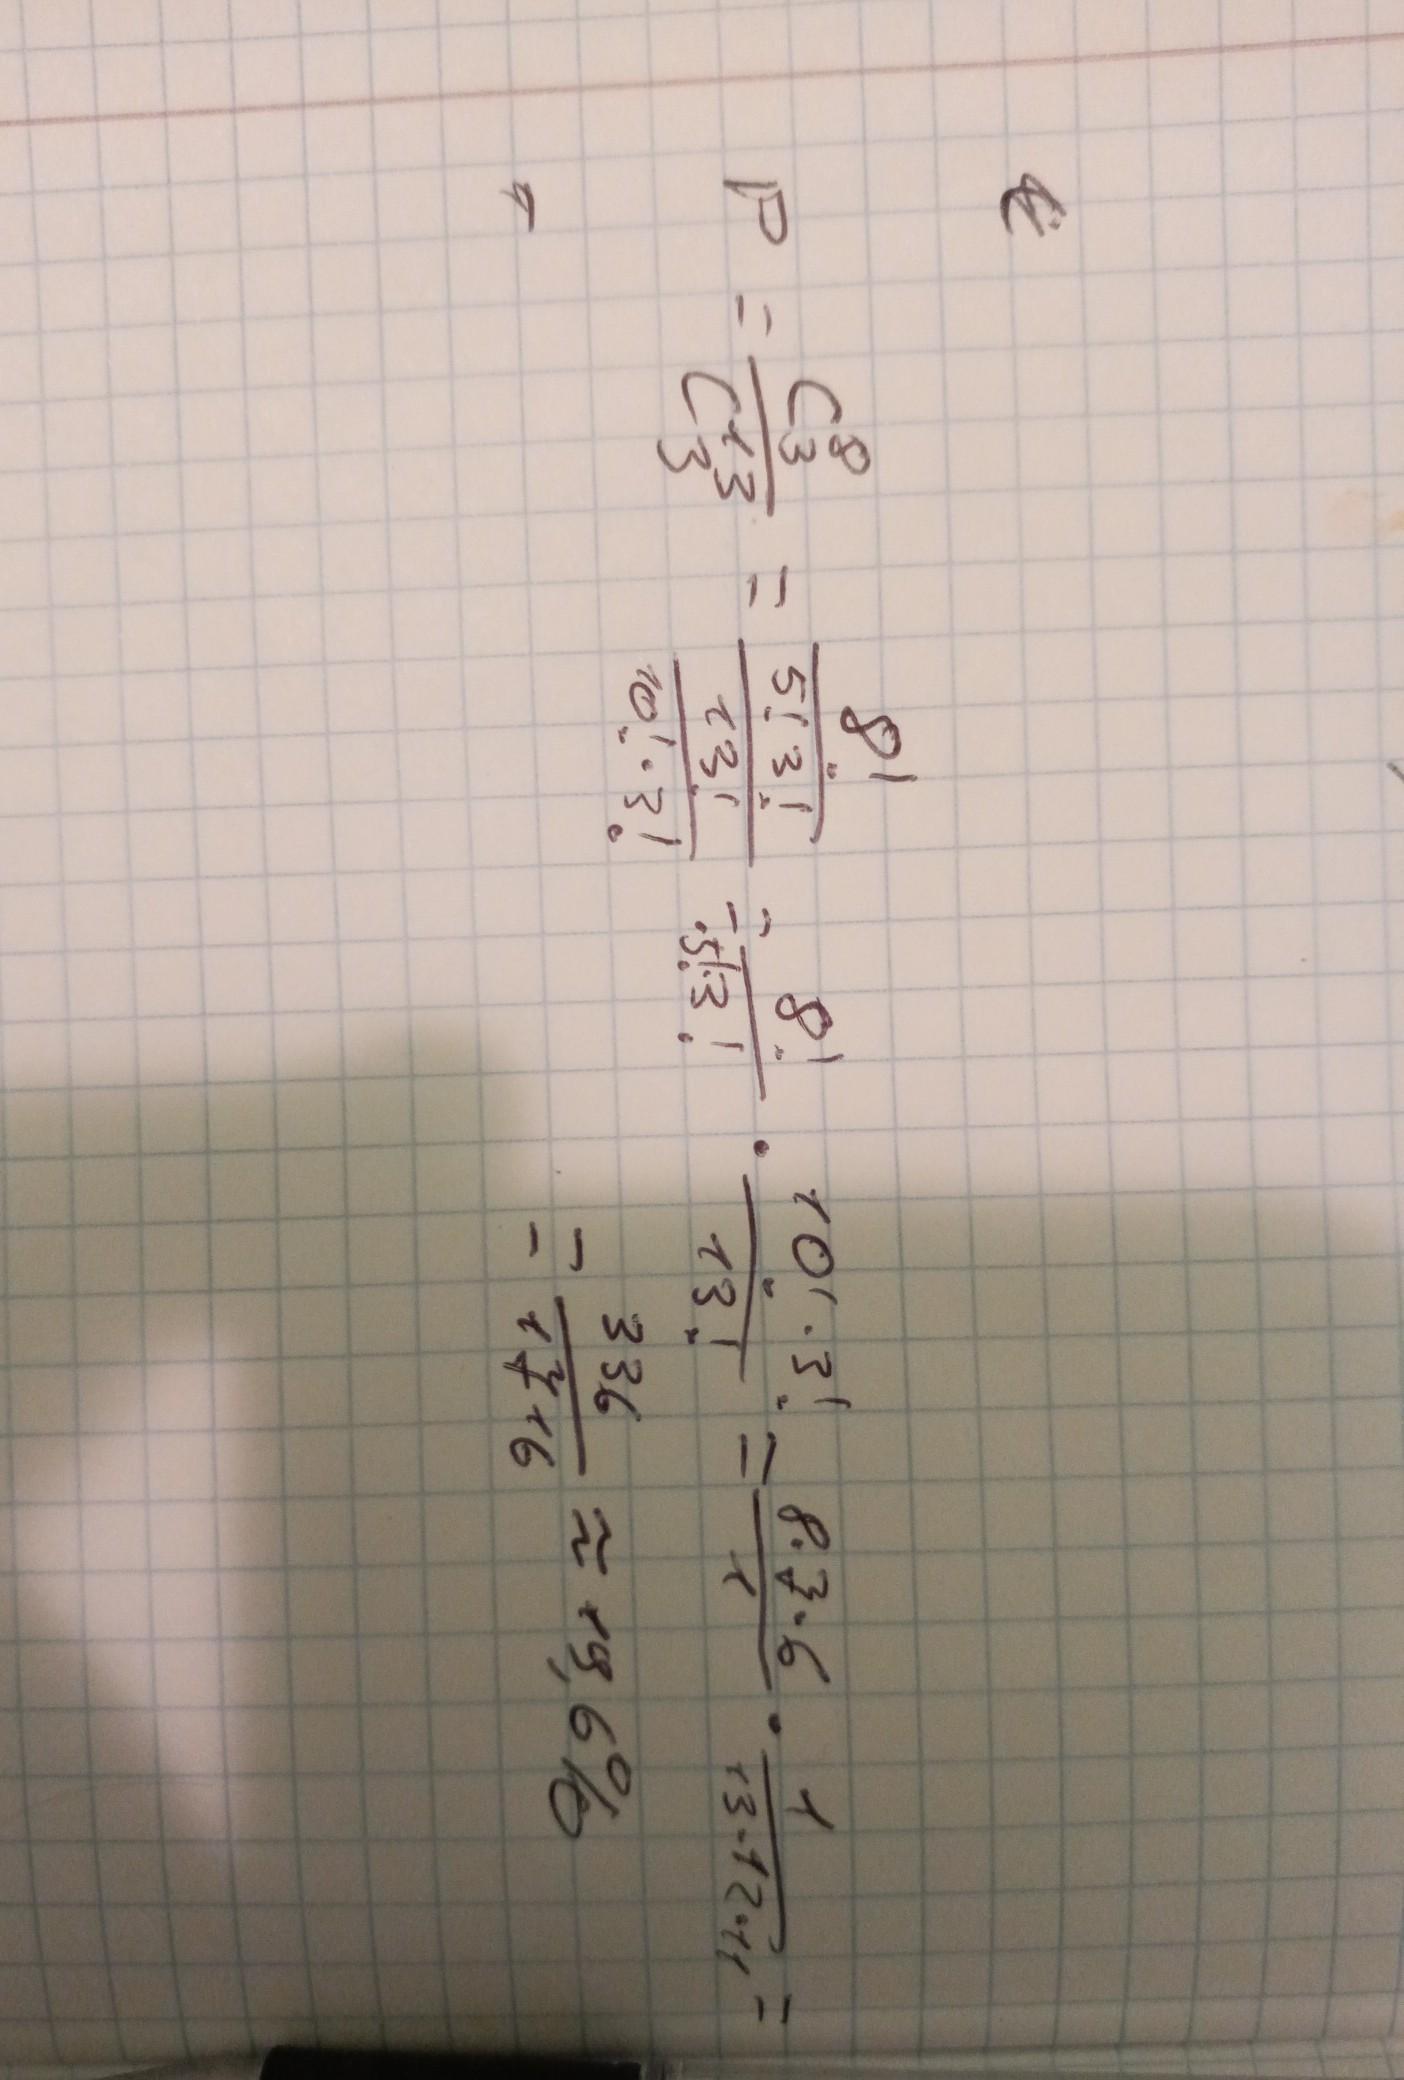 P = C₃⁸ / C₃¹³ = (8! / (5! 3!)) / (13! / (10! · 3!)) = 8! / (5! 3!) · (10! · 3!) / 13! = (8·7·6) / 1 · 1 / (13·12·11) =
= 336 / 1716 ≈ 19,6%